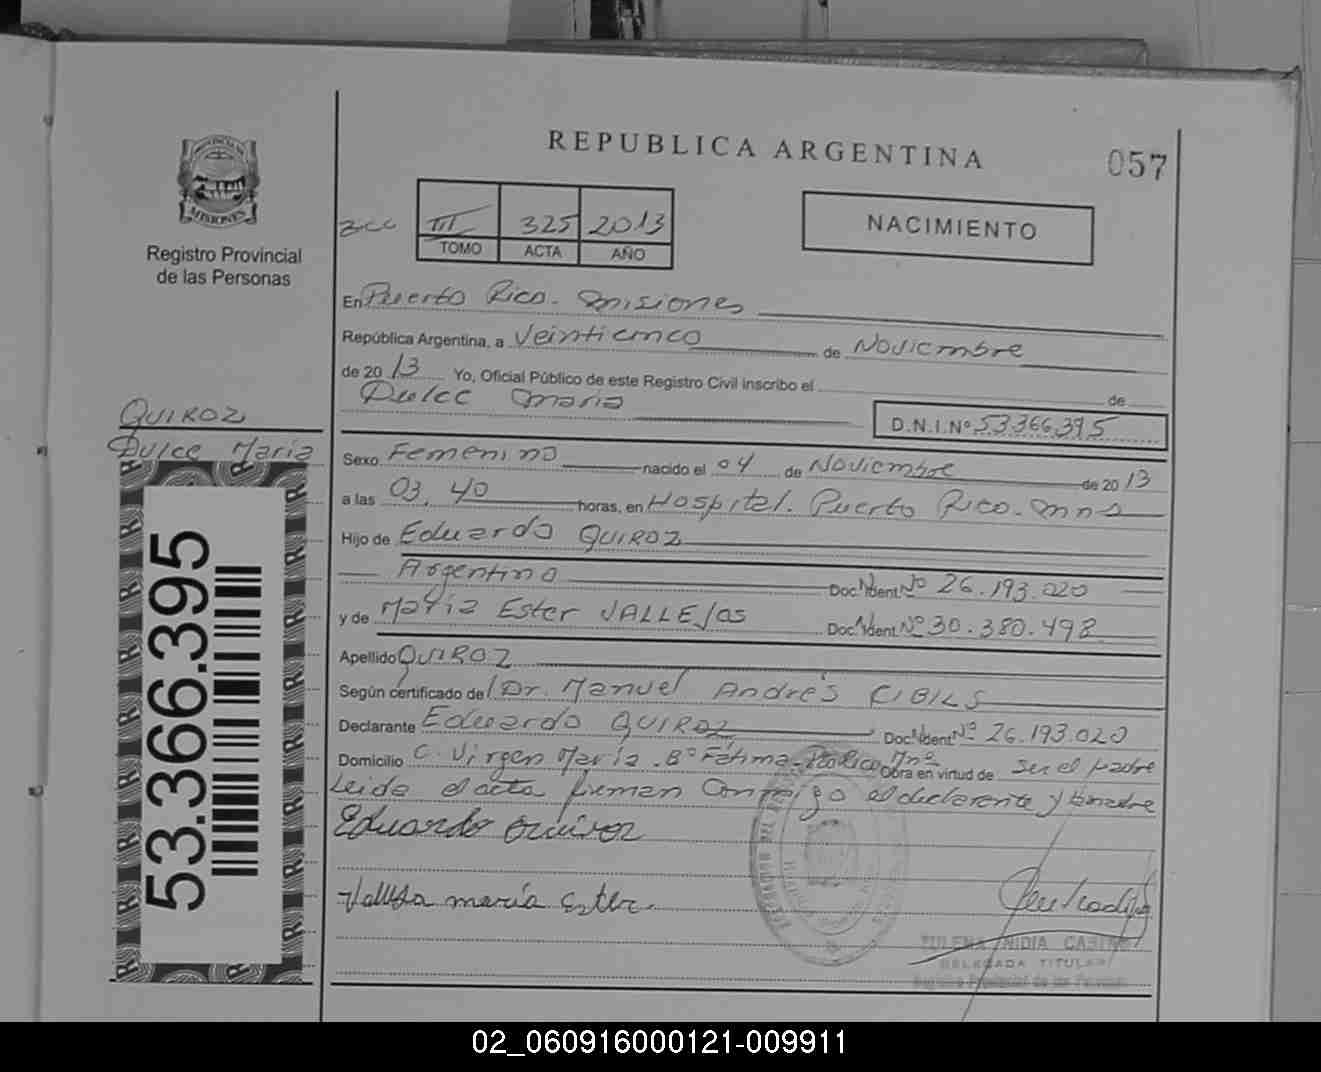 REPUBLICA ARGENTINA
057
PROVINCIA DE
MISIONES
Registro Provincial
de las Personas
III 325 2013
TOMO ACTA AÑO
NACIMIENTO
En Puerto Rico. Misiones
República Argentina, a Veinticinco de Noviembre
de 2013 Yo, Oficial Público de este Registro Civil inscribo el de
Dulce Maria
D.N.I.Nº 53366395
QUIROZ
Dulce Maria
Sexo Femenino nacido el 04 de Noviembre de 2013
a las 03,40 horas, en Hospital. Puerto Rico. Mns
Hijo de Eduardo QUIROZ
Argentino Doc. Ident. Nº 26.193.020
y de María Ester VALLEJOS Doc. Ident. Nº 30.380.498
Apellido QUIROZ
Según certificado de Dr. Manuel Andrés CIBILS
Declarante Eduardo QUIROZ Doc. Ident. Nº 26.193.020
Domicilio C. Virgen María. Bº Fátima. Mns Obra en virtud de ser el padre
Leida el acta firman conmigo el declarante y
Eduardo Quiroz
maría Ester.
53.366.395
NIDIA
DELEGADA TITULAR
Registro Provincial de las Personas
02_060916000121-009911